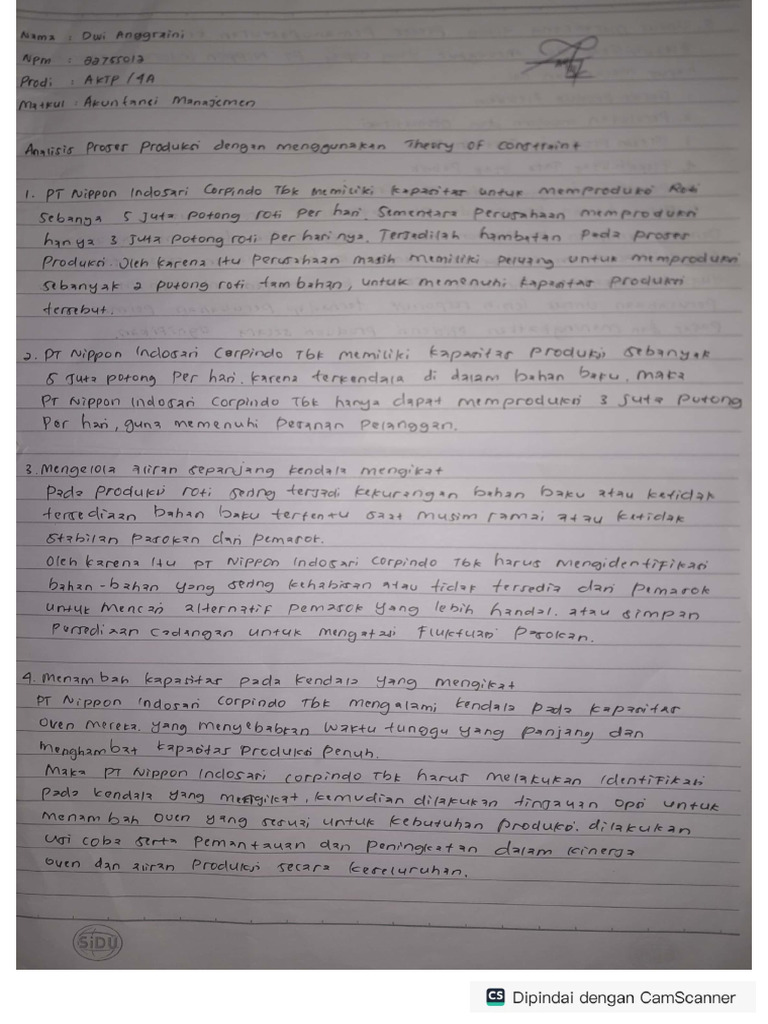 Nama : Dwi Anggraini
Npm : 22755012
Prodi : AKTP / 4A
Matkul : Akuntansi Manajemen
Analisis Proses Produksi dengan menggunakan Theory of constraint
1. PT Nippon Indosari Corpindo Tbk memiliki kapasitas untuk memproduksi Roti
sebanya 5 juta potong roti per hari. Sementara perusahaan memproduksi
hanya 3 juta potong roti per harinya. Terjadilah hambatan pada proses
produksi. Oleh karena itu perusahaan masih memiliki peluang untuk memproduksi
sebanyak 2 potong roti tambahan, untuk memenuhi kapasitas produksi
tersebut.
2. PT Nippon Indosari Corpindo Tbk memiliki kapasitas produksi sebanyak
5 juta potong per hari. karena terkendala di dalam bahan baku, maka
PT Nippon Indosari Corpindo Tbk hanya dapat memproduksi 3 juta potong
per hari, guna memenuhi pesanan pelanggan.
3. Mengelola aliran sepanjang kendala mengikat
pada produksi roti sering terjadi kekurangan bahan baku atau ketidak
tersediaan bahan baku tertentu saat musim ramai atau ketidak
stabilan pasokan dari pemasok.
Oleh karena itu PT Nippon Indosari Corpindo Tbk harus mengidentifikasi
bahan-bahan yang sering kehabisan atau tidak tersedia dari pemasok
untuk mencari alternatif pemasok yang lebih handal. atau simpan
persediaan cadangan untuk mengatasi fluktuasi pasokan.
4. Menambah kapasitas pada kendala yang mengikat
PT Nippon Indosari Corpindo Tbk mengalami kendala pada kapasitas
oven mereka. yang menyebabkan waktu tunggu yang panjang dan
menghambat kapasitas produksi penuh.
Maka PT Nippon Indosari Corpindo Tbk harus melakukan identifikasi
pada kendala yang mengikat, kemudian dilakukan tinjauan opsi untuk
menambah oven yang sesuai untuk kebutuhan produksi. dilakukan
uji coba serta pemantauan dan peningkatan dalam kinerja
oven dan aliran produksi secara keseluruhan.
SiDU
CS Dipindai dengan CamScanner